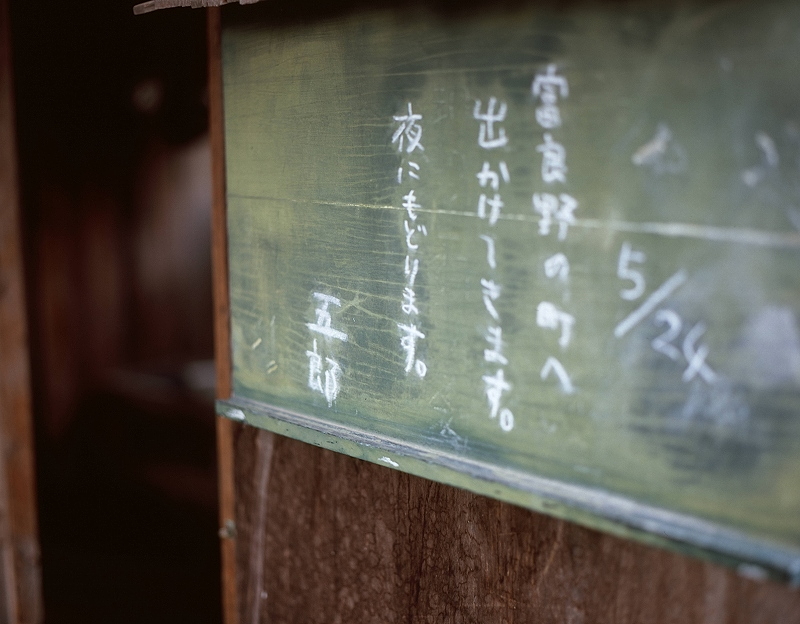 5/24
富良野の町へ
出かけてきます。
夜にもどります。
五郎